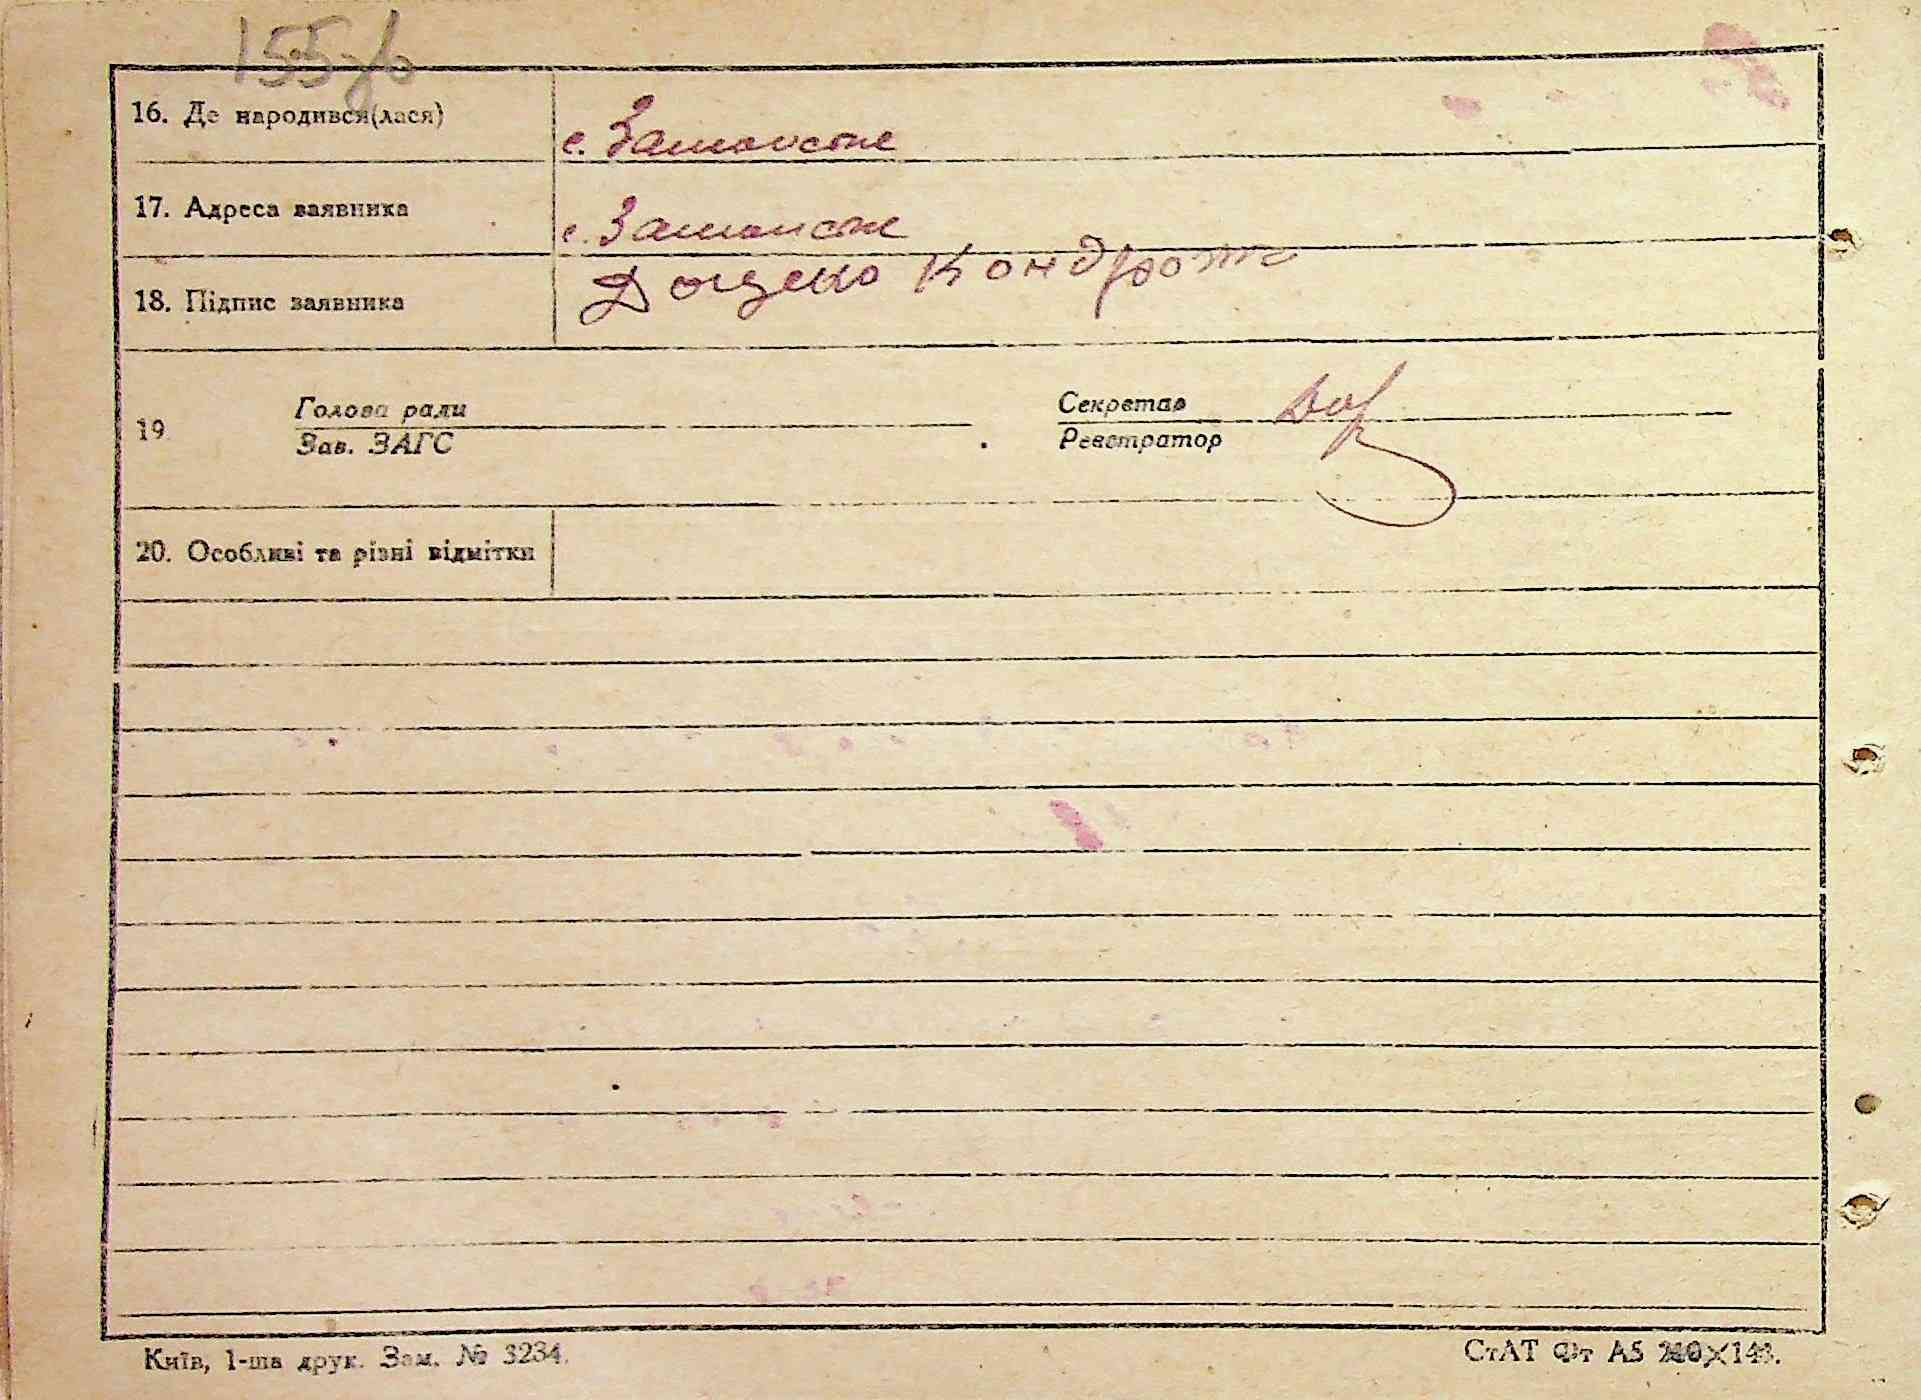 155зв
16. Де народився(лася)
с. Замостє
17. Адреса заявника
с. Замостє
18. Підпис заявника
Доценко Кондрат
19
Голова ради
Зав. ЗАГС
Секретар
Реєстратор
20. Особливі та різні відмітки
Київ, 1-ша друк. Зам. № 3234.
СтАТ Фт А5 210×148.